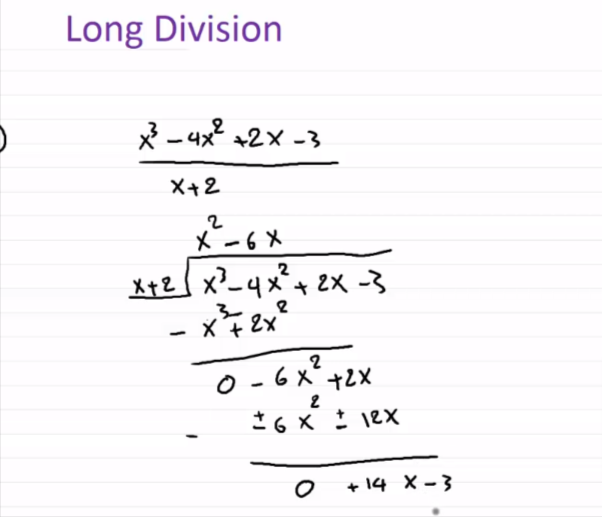 Long Division
)
x³ - 4x² + 2x - 3
x + 2
x² - 6x
x + 2 x³ - 4x² + 2x - 3
- x³ + 2x²
0 - 6x² + 2x
- ± 6x² ± 12x
0 + 14x - 3